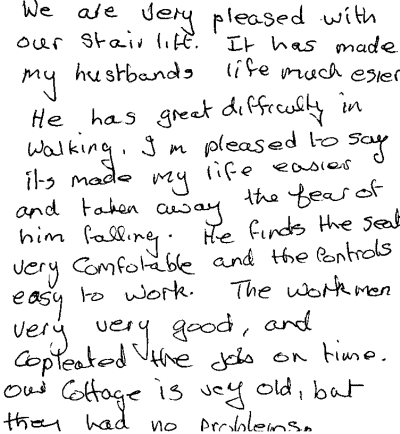 We are very pleased with
our Stair lift. It has made
my hustbands life much esier
He has great difficulty in
walking, I'm pleased to say
its made my life easier
and taken away the fear of
him falling. He finds the seat
very Comfotable and the Controls
easy to work. The workmen
very very good, and
Copleated the job on time.
Our Cottage is vey old, but
they had no problems.